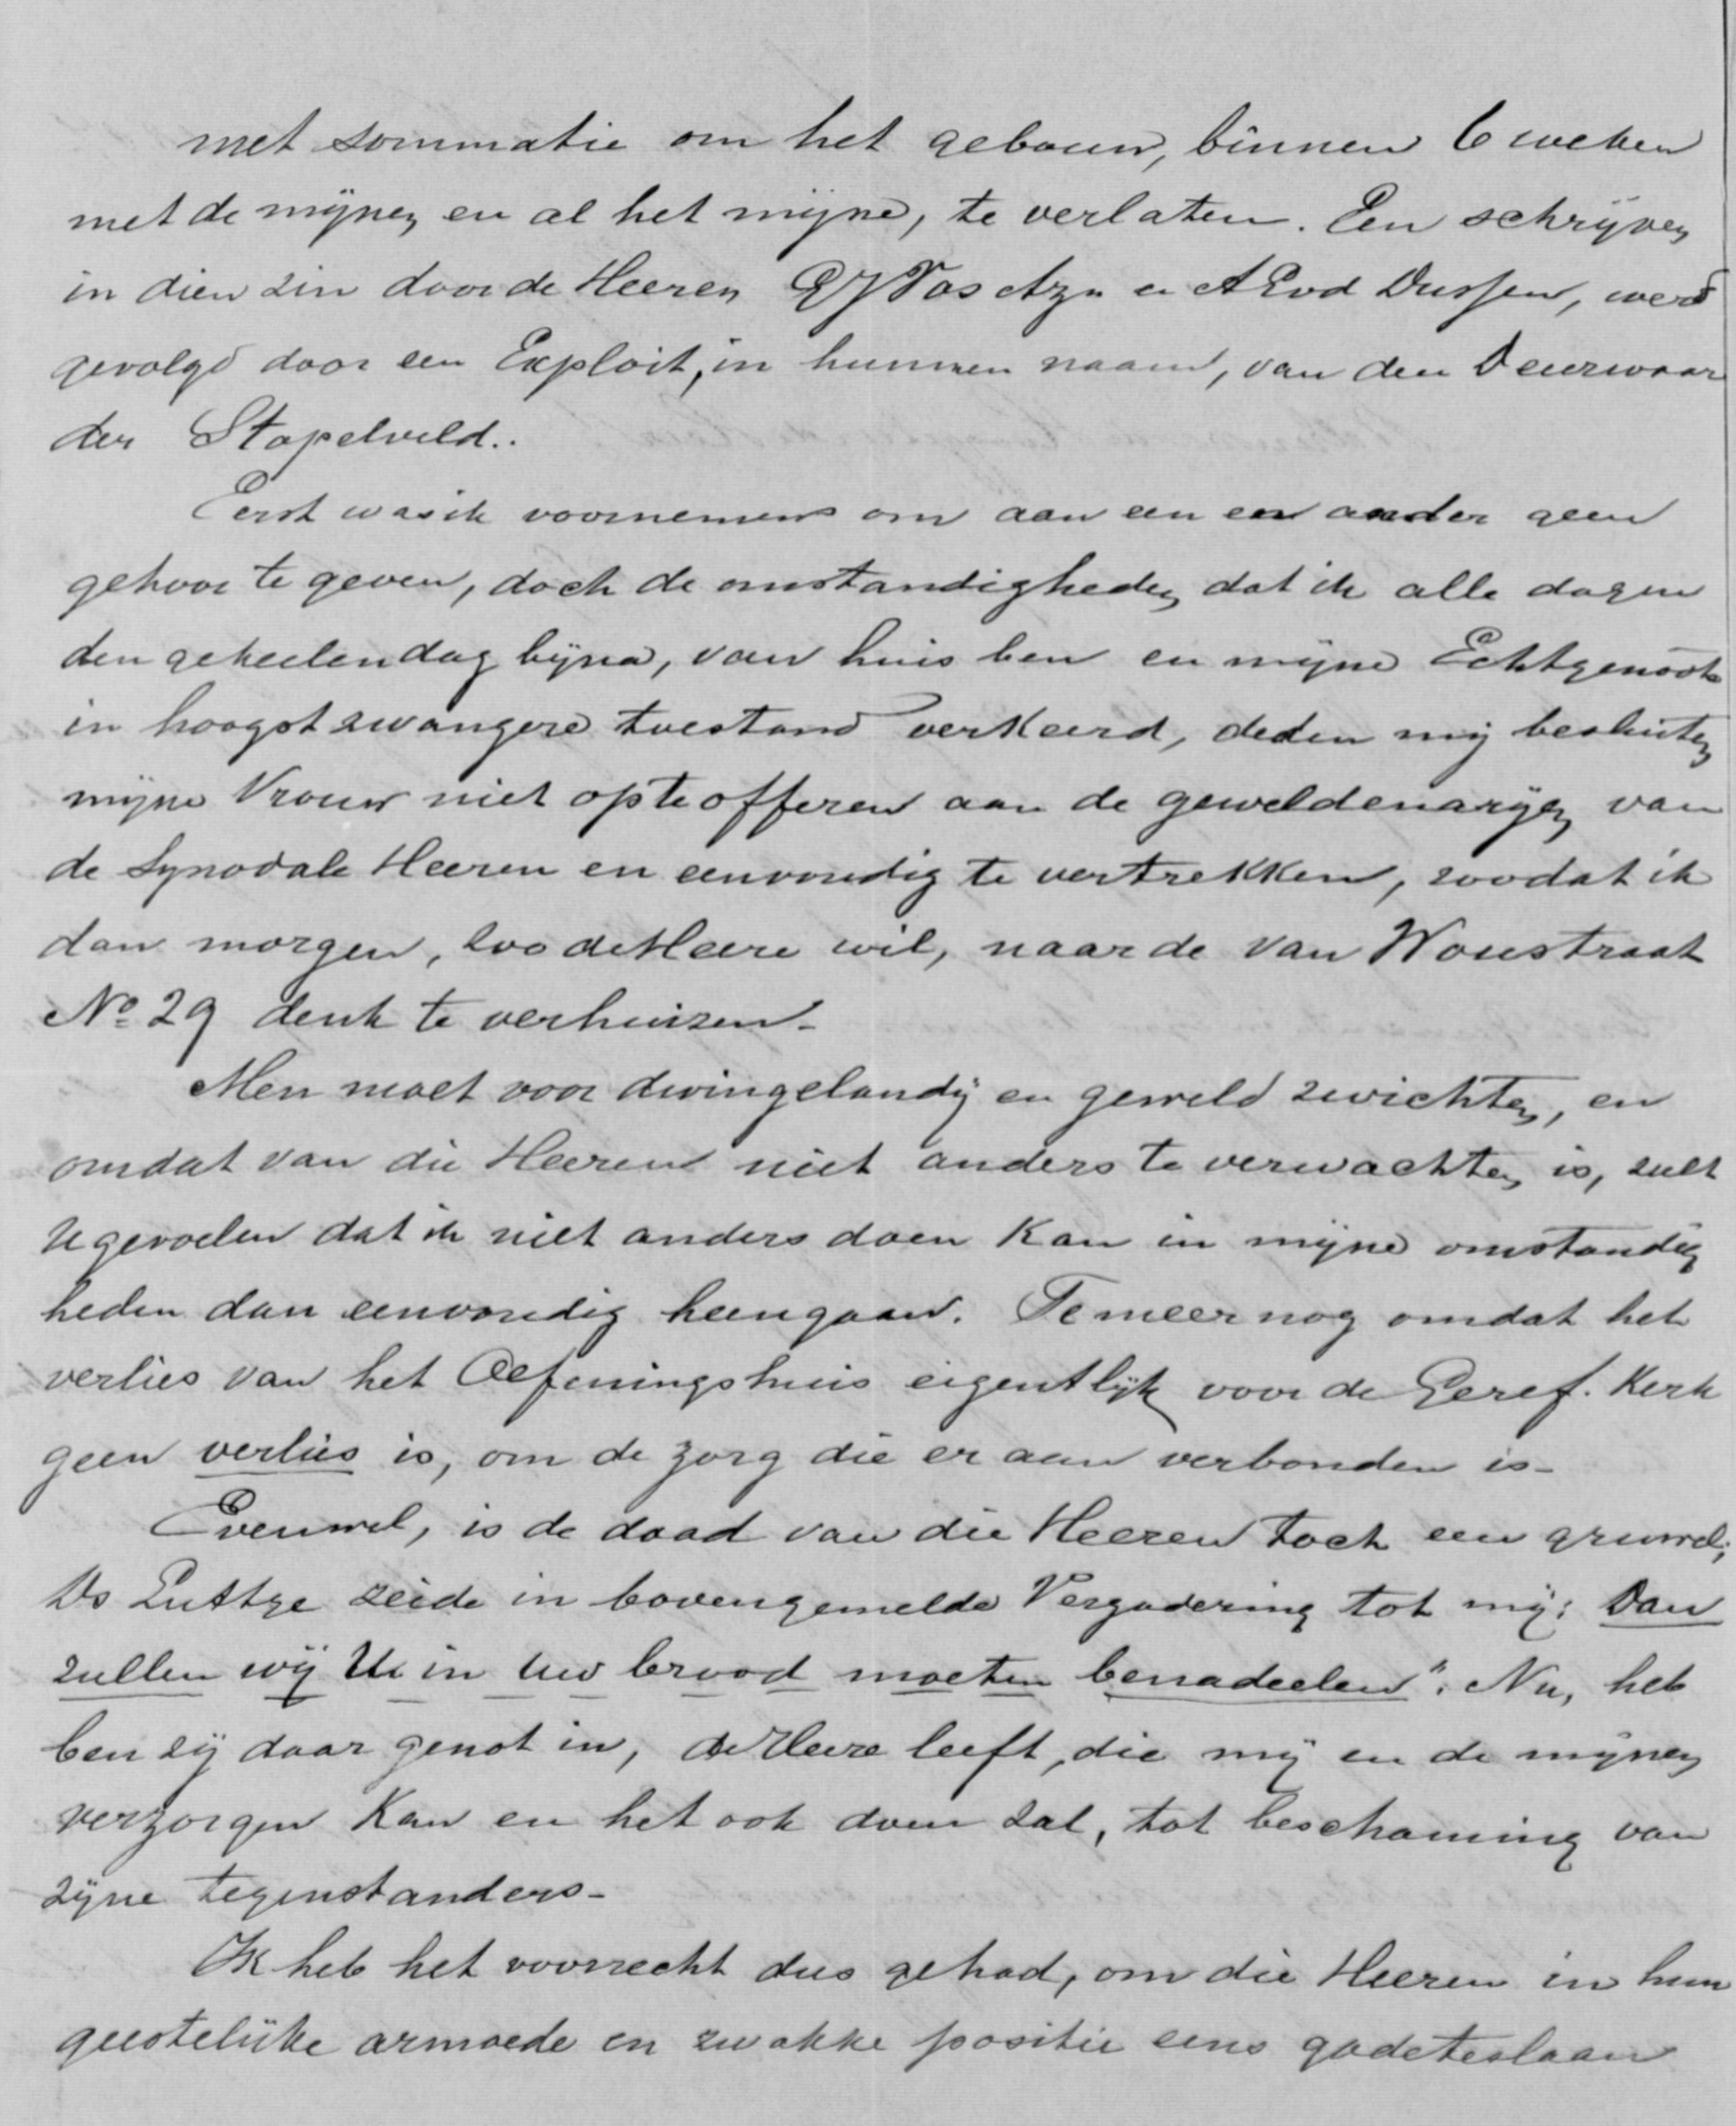 met sommatie om het gebouw, binnen 6 weken
met de mijnen en al het mijne, te verlaten. Een schrijven
in dien zin door de Heeren G J Vos Azn en A P vd Dussen, werd
gevolgd door een Exploit, in hunnen naam, van den Deurwaar
der Stapelveld.
Eerst was ik voornemens om aan een en ander geen
gehoor te geven, doch de omstandigheden dat ik alle dagen
den geheelen dag bijna, van huis ben en mijne Echtgenoote
in hoogst zwangere toestand verkeerd, deden mij besluiten
mijne Vrouw niet op te offeren aan de geweldenarijen van
de Synodale Heeren en eenvoudig te vertrekken, zoodat ik
dan morgen, zoo de Heere wil, naar de van Woustraat
No 29 denk te verhuizen.
Men moet voor dwingelandij en geweld zwichten, en
omdat van die Heeren niet anders te verwachten is, zult
U gevoelen dat ik niet anders doen kan in mijne omstandig
heden dan eenvoudig heengaan. Te meer nog omdat het
verlies van het Oefeningshuis eigentlijk voor de Geref. Kerk
geen verlies is, om de zorg die er aan verbonden is.
Evenwel, is de daad van die Heeren toch een gruwel;
Ds Luttge zeide in bovengemelde Vergadering tot mij: Dan
zullen wij U in uw brood moeten benadeelen". Nu, heb
ben zij daar genot in, de Heere leeft, die mij en de mijnen
verzorgen kan en het ook doen zal, tot beschaming van
zijne tegenstanders.
Ik heb het voorrecht dus gehad, om die Heeren in hun
geestelijke armoede en zwakke positie eens gadeteslaan